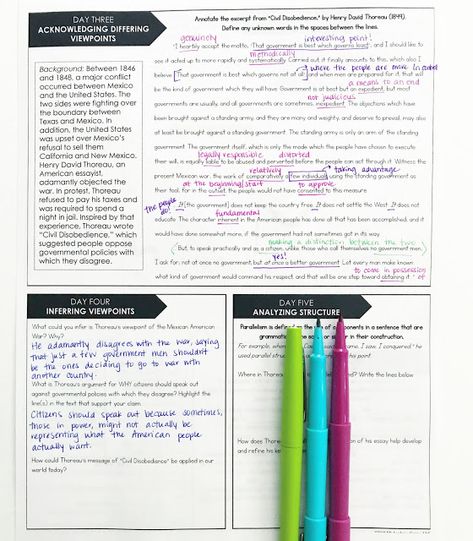 DAY THREE
ACKNOWLEDGING DIFFERING
VIEWPOINTS
Background: Between 1846
and 1848, a major conflict
occurred between Mexico
and the United States. The
two sides were fighting over
the boundary between
Texas and Mexico. In
addition, the United States
was upset over Mexico's
refusal to sell them
California and New Mexico.
Henry David Thoreau, an
American essayist,
adamantly objected the
war. In protest, Thoreau
refused to pay his taxes and
was required to spend a
night in jail. Inspired by that
experience, Thoreau wrote
"Civil Disobedience," which
suggested people oppose
governmental policies with
which they disagree.
Annotate the excerpt from "Civil Disobedience," by Henry David Thoreau (1849).
Define any unknown words in the spaces between the lines.
genuinely interesting point!
"I heartily accept the motto, 'That government is best which governs least'; and I should like to
methodically
see it acted up to more rapidly and systematically. Carried out, it finally amounts to this, which also I
where the people are more in control
believe: 'That government is best which governs not at all'; and when men are prepared for it, that will
a means to an end
be the kind of government which they will have. Government is at best but an expedient; but most
not judicious
governments are usually, and all governments are sometimes, inexpedient. The objections which have
been brought against a standing army, and they are many and weighty, and deserve to prevail, may also
at last be brought against a standing government. The standing army is only an arm of the standing
government. The government itself, which is only the mode which the people have chosen to execute
legally responsible distorted
their will, is equally liable to be abused and perverted before the people can act through it. Witness the
relatively taking advantage
present Mexican war, the work of comparatively a few individuals using the standing government as
at the beginning/start to approve
their tool; for in the outset, the people would not have consented to this measure.
the people do!
It [the government] does not keep the country free. It does not settle the West. It does not
fundamental
educate. The character inherent in the American people has done all that has been accomplished; and it
would have done somewhat more, if the government had not sometimes got in its way.
making a distinction between the two
But, to speak practically and as a citizen, unlike those who call themselves no-government men,
yes!
I ask for, not at once no government, but at once a better government. Let every man make known
to come in possession of
what kind of government would command his respect, and that will be one step toward obtaining it."
DAY FOUR
INFERRING VIEWPOINTS
What could you infer is Thoreau's viewpoint of the Mexican American
War? Why?
He adamantly disagrees with the war, saying
that just a few government men shouldn't
be the ones deciding to go to war with
another country.
What is Thoreau's argument for WHY citizens should speak out
against governmental policies with which they disagree? Highlight the
line(s) in the text that support your claim.
Citizens should speak out because sometimes,
those in power, might not actually be
representing what the American people
actually want.
How could Thoreau's message of "Civil Disobedience" be applied in our
world today?
DAY FIVE
ANALYZING STRUCTURE
Parallelism is defined as the of components in a sentence that are
grammatically the or similar in their construction.
For example, when came, I saw, I conquered." he
used parallel struc his point.
Where in Thoreau's Write the lines below
How does Thoreau's of his essay help develop
and refine his k